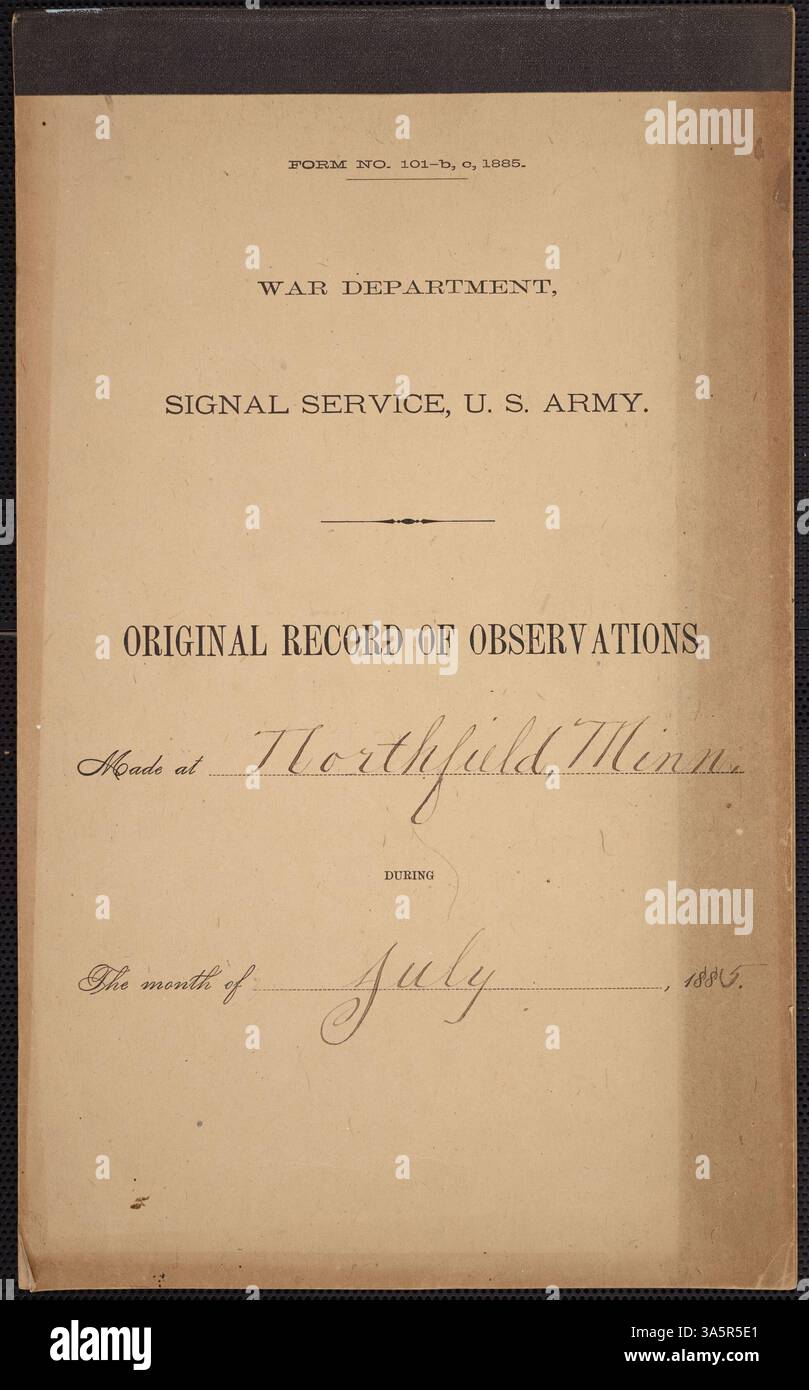 FORM NO. 101-b, c, 1885.
WAR DEPARTMENT,
SIGNAL SERVICE, U. S. ARMY.
ORIGINAL RECORD OF OBSERVATIONS
Made at Northfield, Minn.
DURING
The month of July, 1885.
alamy
Image ID: 3A5R5E1
www.alamy.com